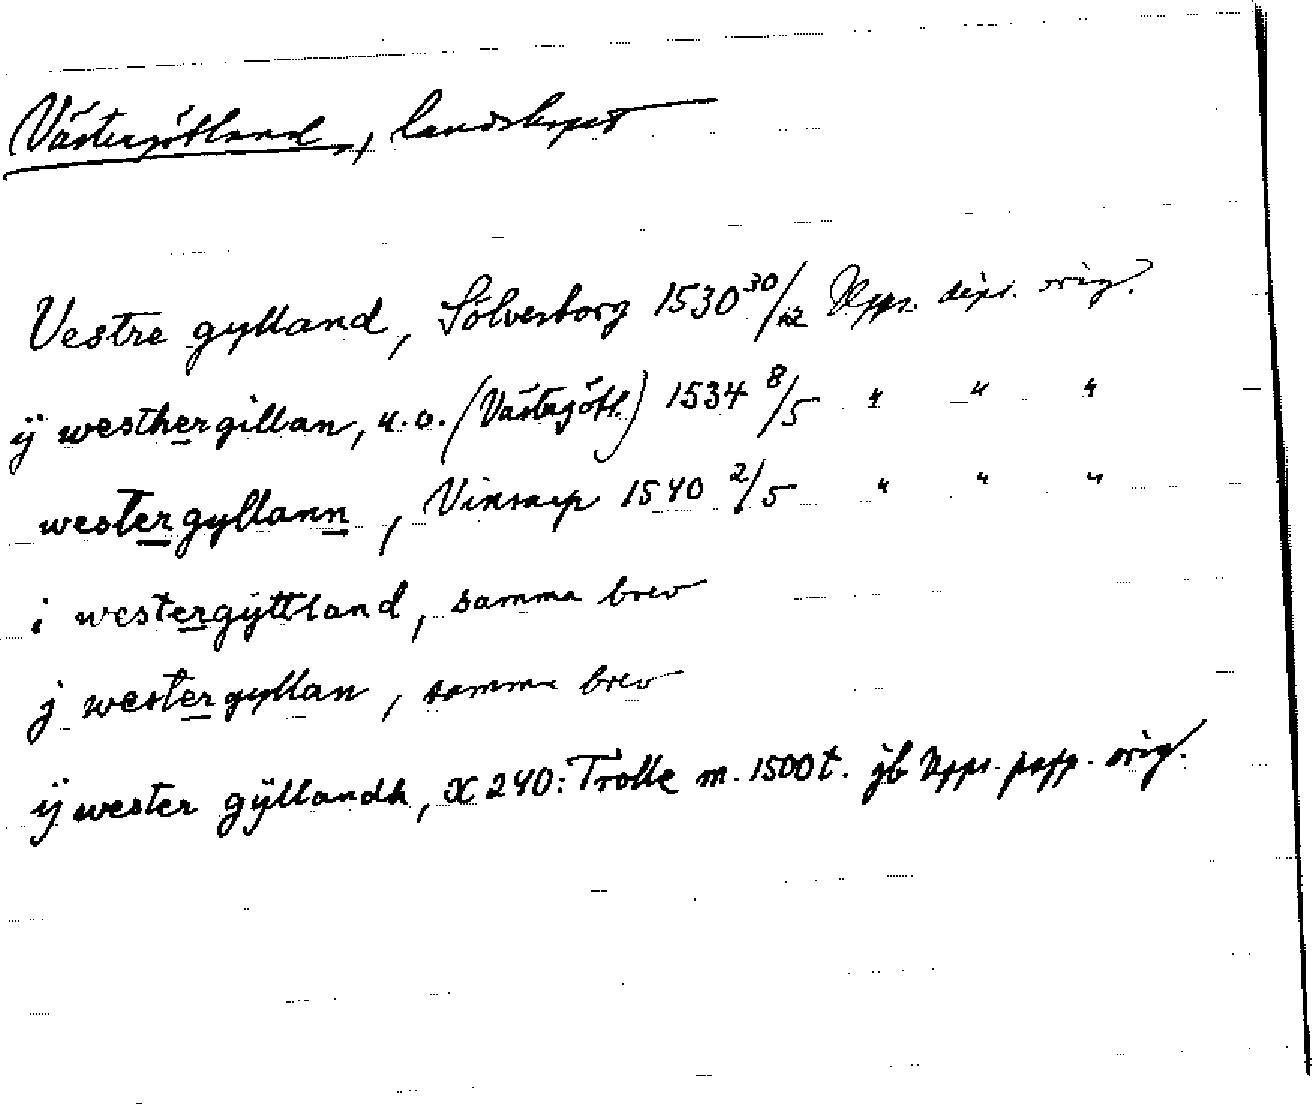 Västergötland, landskapet
Vestre gylland, Sölvesborg 1530 30/12 Upps. dipl. orig.
ÿ westhergillan, u.o. (Västergötl.) 1534 8/5 " " "
westergyllann, Vinsarp 1540 2/5 " " "
i westergÿttland, samma brev
j westergyllan, samma brev
ÿ wester gÿllandh, X 240: Trolle m. 1500 t. jb Upps. papp. orig.